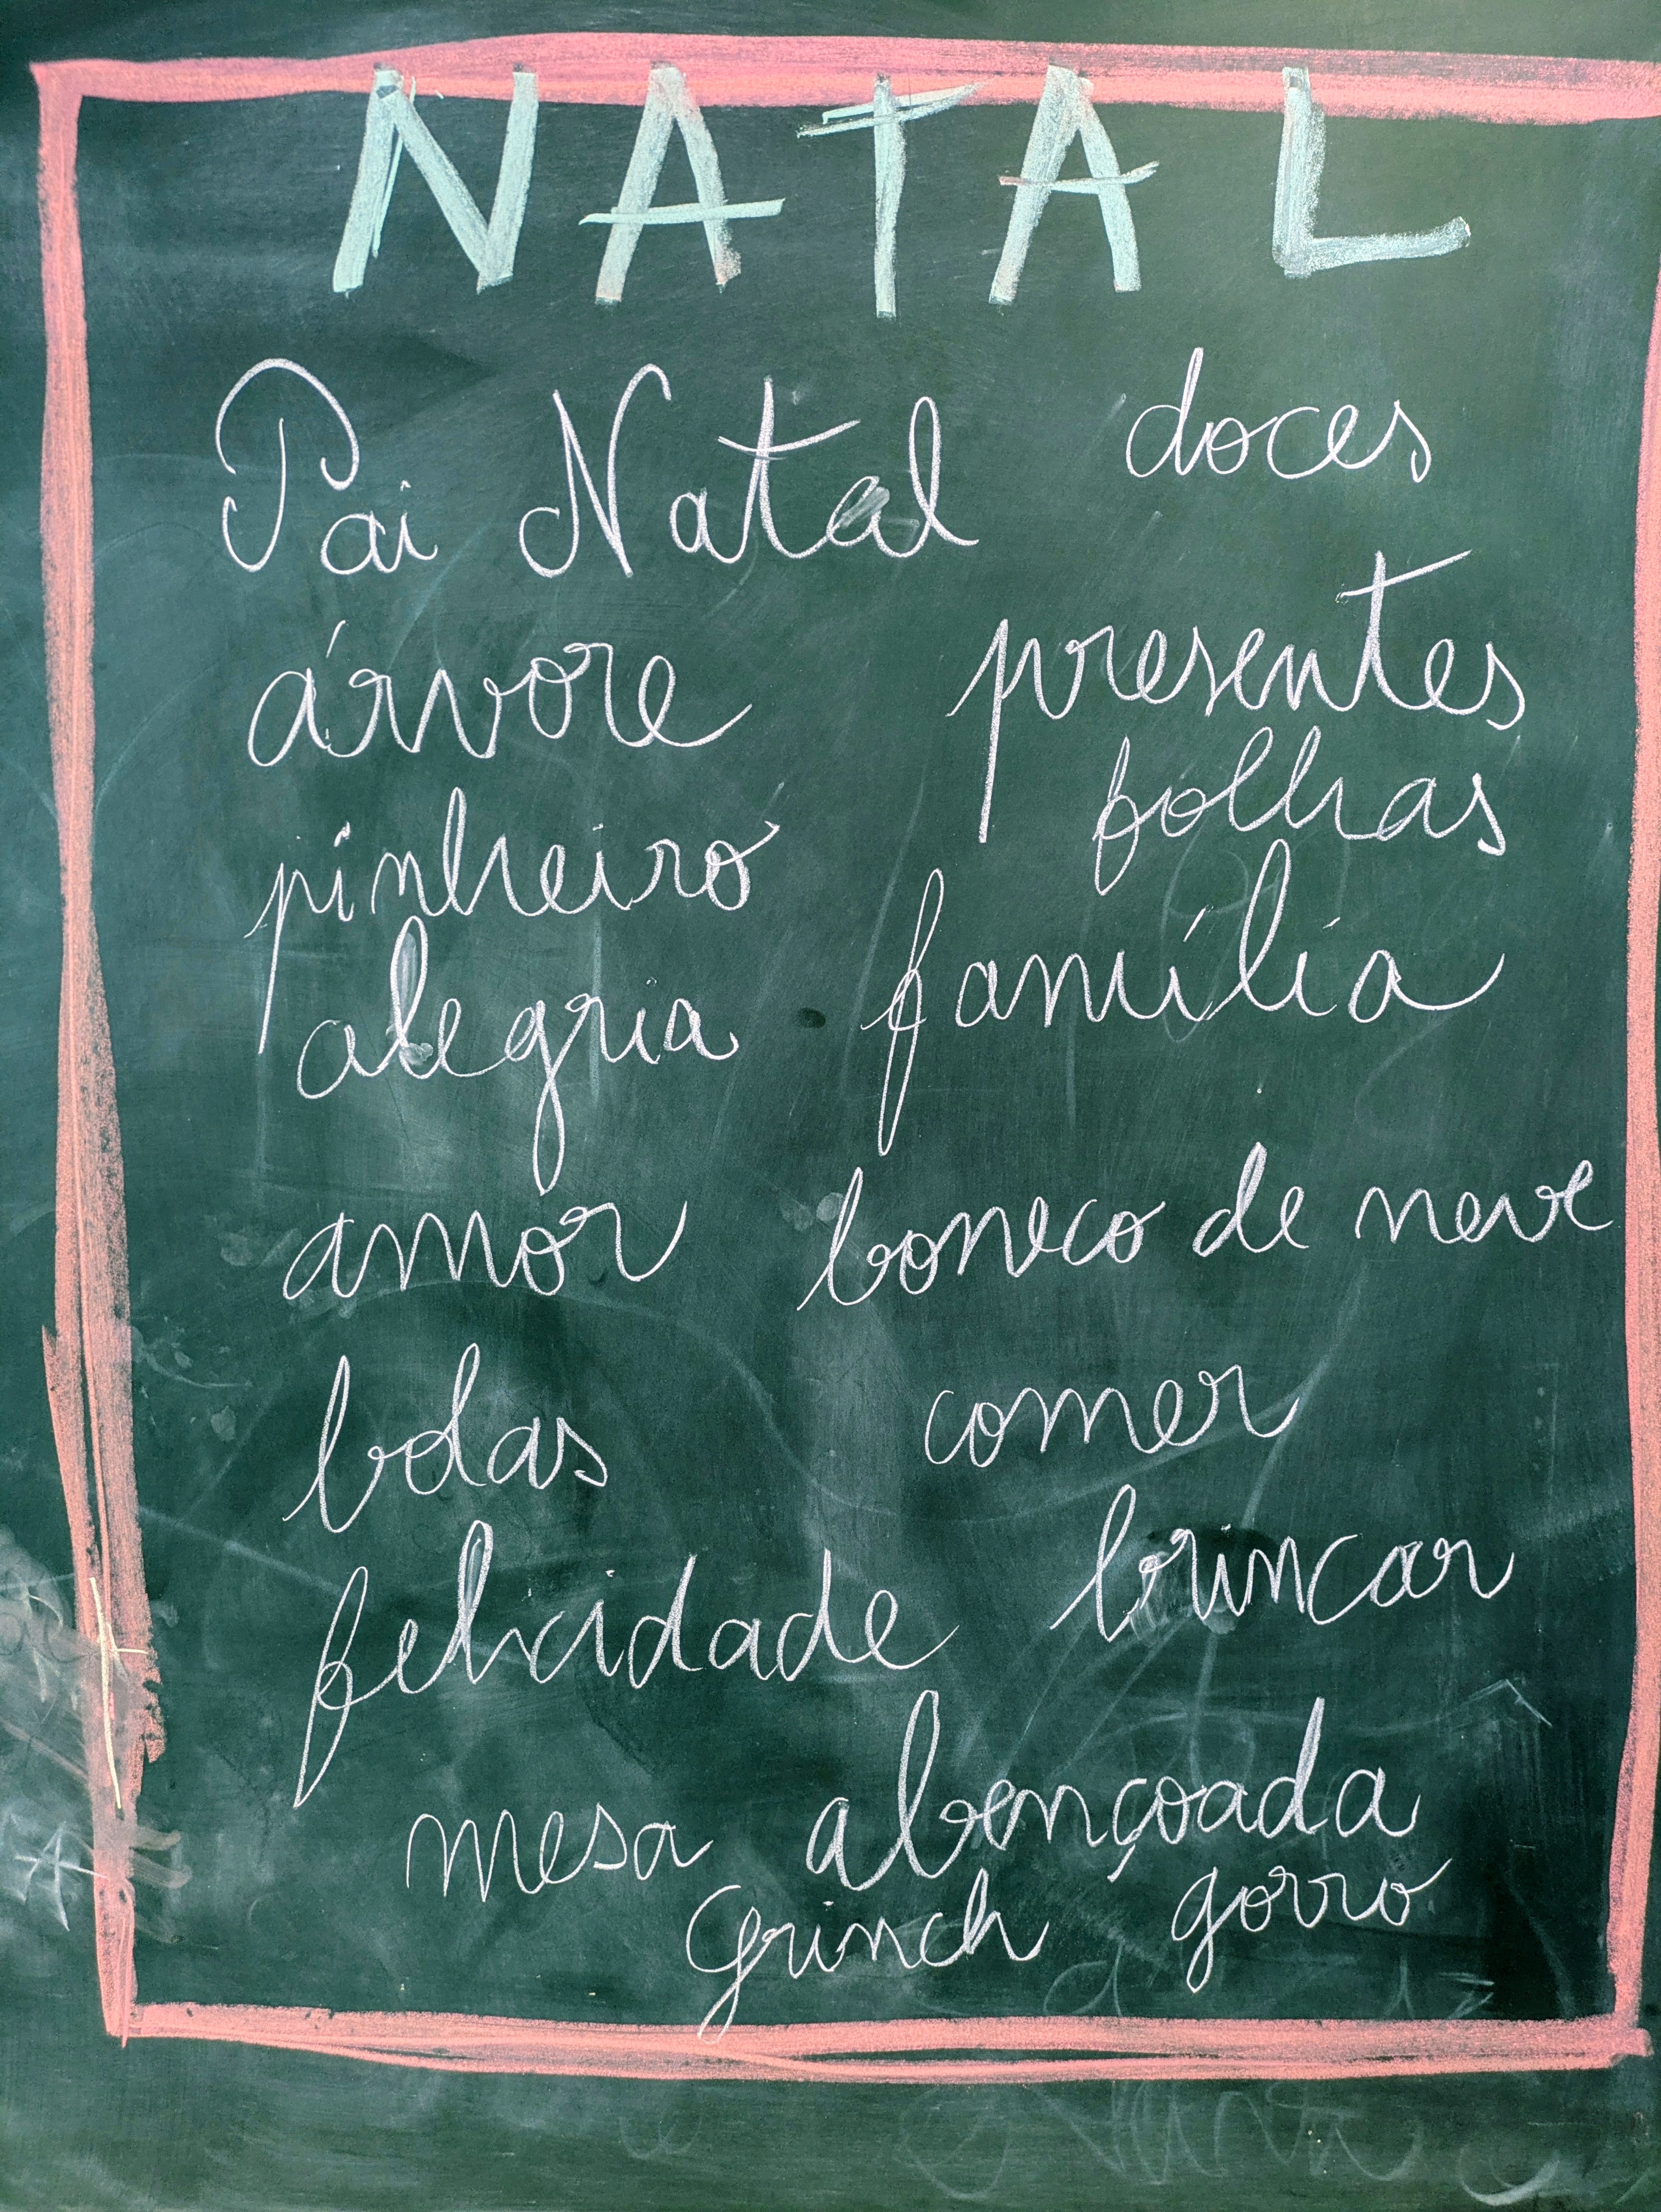 NATAL
Pai Natal doces
árvore presentes
pinheiro folhas
alegria família
amor boneco de neve
bolas comer
felicidade brincar
mesa abençoada
Grinch gorro